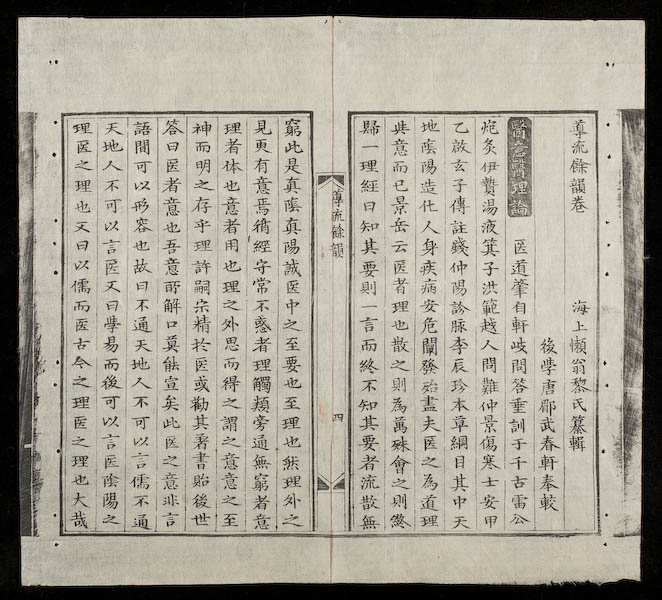 導流餘韻卷
海上懶翁黎氏纂輯
後學唐郿武春軒奉較
醫意醫理論 医道肇自軒岐問答垂訓于千古雷公
炮灸伊贄湯液箕子洪範越人問難仲景傷寒士安甲
乙啟玄子傳註錢仲陽診脉李辰珍本草綱目其中天
地陰陽造化人身疾病安危闡發殆盡夫医之為道理
與意而已景岳云医者理也散之則為萬殊會之則總
歸一理經曰知其要則一言而終不知其要者流散無
導流餘韻
四
窮此是真陰真陽誠医中之至要也至理也然理外之
見更有意焉猶經守常不惑者理觸類旁通無窮者意
理者体也意者用也理之外思而得之謂之意意之至
神而明之存乎理許嗣宗精於医或勸其著書貽後世
答曰医者意也吾意所解口莫能宣矣此医之意非言
語間可以形容也故曰不通天地人不可以言儒不通
天地人不可以言医又曰學易而後可以言医陰陽之
理医之理也又曰以儒而医古今之理医之理也大哉